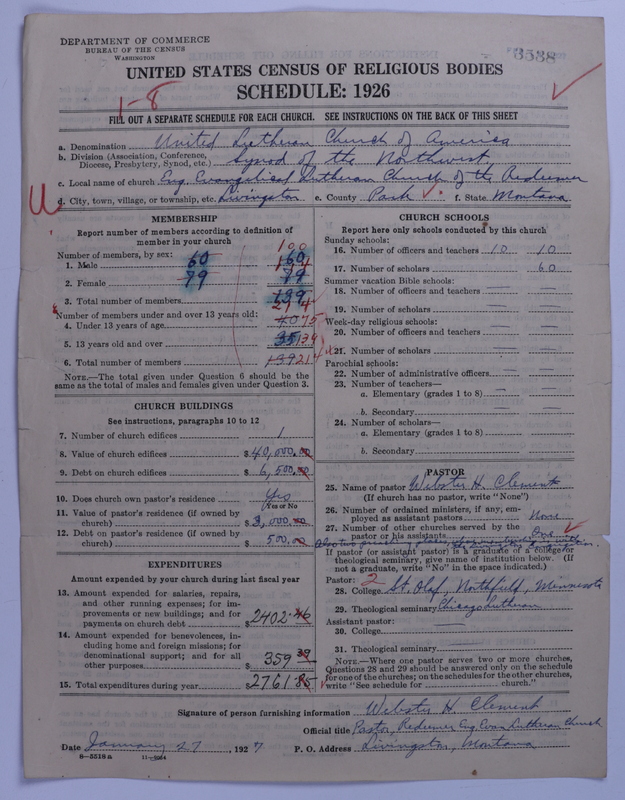 DEPARTMENT OF COMMERCE
BUREAU OF THE CENSUS
WASHINGTON
3538
UNITED STATES CENSUS OF RELIGIOUS BODIES
SCHEDULE: 1926
1-8
FILL OUT A SEPARATE SCHEDULE FOR EACH CHURCH. SEE INSTRUCTIONS ON THE BACK OF THIS SHEET
a. Denomination United Lutheran Church of America
b. Division (Association, Conference, Diocese, Presbytery, Synod, etc.) Synod of the Northwest
c. Local name of church Eng. Evangelical Lutheran Church of the Redeemer
d. City, town, village, or township, etc. Livingston e. County Park f. State Montana
MEMBERSHIP
Report number of members according to definition of
member in your church
Number of members, by sex:
100
1. Male 60 60
2. Female 79 79
3. Total number of members 139
Number of members under and over 13 years old:
4. Under 13 years of age 75
5. 13 years old and over
6. Total number of members 139 214
NOTE.—The total given under Question 6 should be
same as the total of males and females given under Question 3.
CHURCH BUILDINGS
See instructions, paragraphs 10 to 12
7. Number of church edifices 1
8. Value of church edifices $40,000.00
9. Debt on church edifices $6,500.00
10. Does church own pastor's residence Yes
Yes or No
11. Value of pastor's residence (if owned by
church) $3,000.00
12. Debt on pastor's residence (if owned by
church) $500.00
EXPENDITURES
Amount expended by your church during last fiscal year
13. Amount expended for salaries, repairs,
and other running expenses; for im-
provements or new buildings; and for
payments on church debt $2402.46
14. Amount expended for benevolences, in-
cluding home and foreign missions; for
denominational support; and for all
other purposes $359.39
15. Total expenditures during year $2761.85
CHURCH SCHOOLS
Report here only schools conducted by this church
Sunday schools:
16. Number of officers and teachers 10 10
17. Number of scholars 60
Summer vacation Bible schools:
18. Number of officers and teachers
19. Number of scholars
Week-day religious schools:
20. Number of officers and teachers
21. Number of scholars
Parochial schools:
22. Number of administrative officers
23. Number of teachers—
a. Elementary (grades 1 to 8)
b. Secondary
24. Number of scholars—
a. Elementary (grades 1 to 8)
b. Secondary
PASTOR
25. Name of pastor Webster H. Clement
(If church has no pastor, write "None")
26. Number of ordained ministers, if any, em-
ployed as assistant pastors None
27. Number of other churches served by the
pastor or his assistants One
If pastor (or assistant pastor) is a graduate of a college or
theological seminary, give name of institution below. (If
not a graduate, write "No" in the space indicated.)
Pastor: 2
28. College St. Olaf, Northfield, Minnesota
29. Theological seminary Chicago Lutheran
Assistant pastor:
30. College
31. Theological seminary
NOTE.—Where one pastor serves two or more churches,
Questions 28 and 29 should be answered only on the schedule
for one of the churches; on the schedules for the other churches,
write "See schedule for church."
Signature of person furnishing information Webster H. Clement
Official title Pastor, Redeemer Eng. Evan. Lutheran Church
Date January 27, 1927 P. O. Address Livingston, Montana
8-5518 a